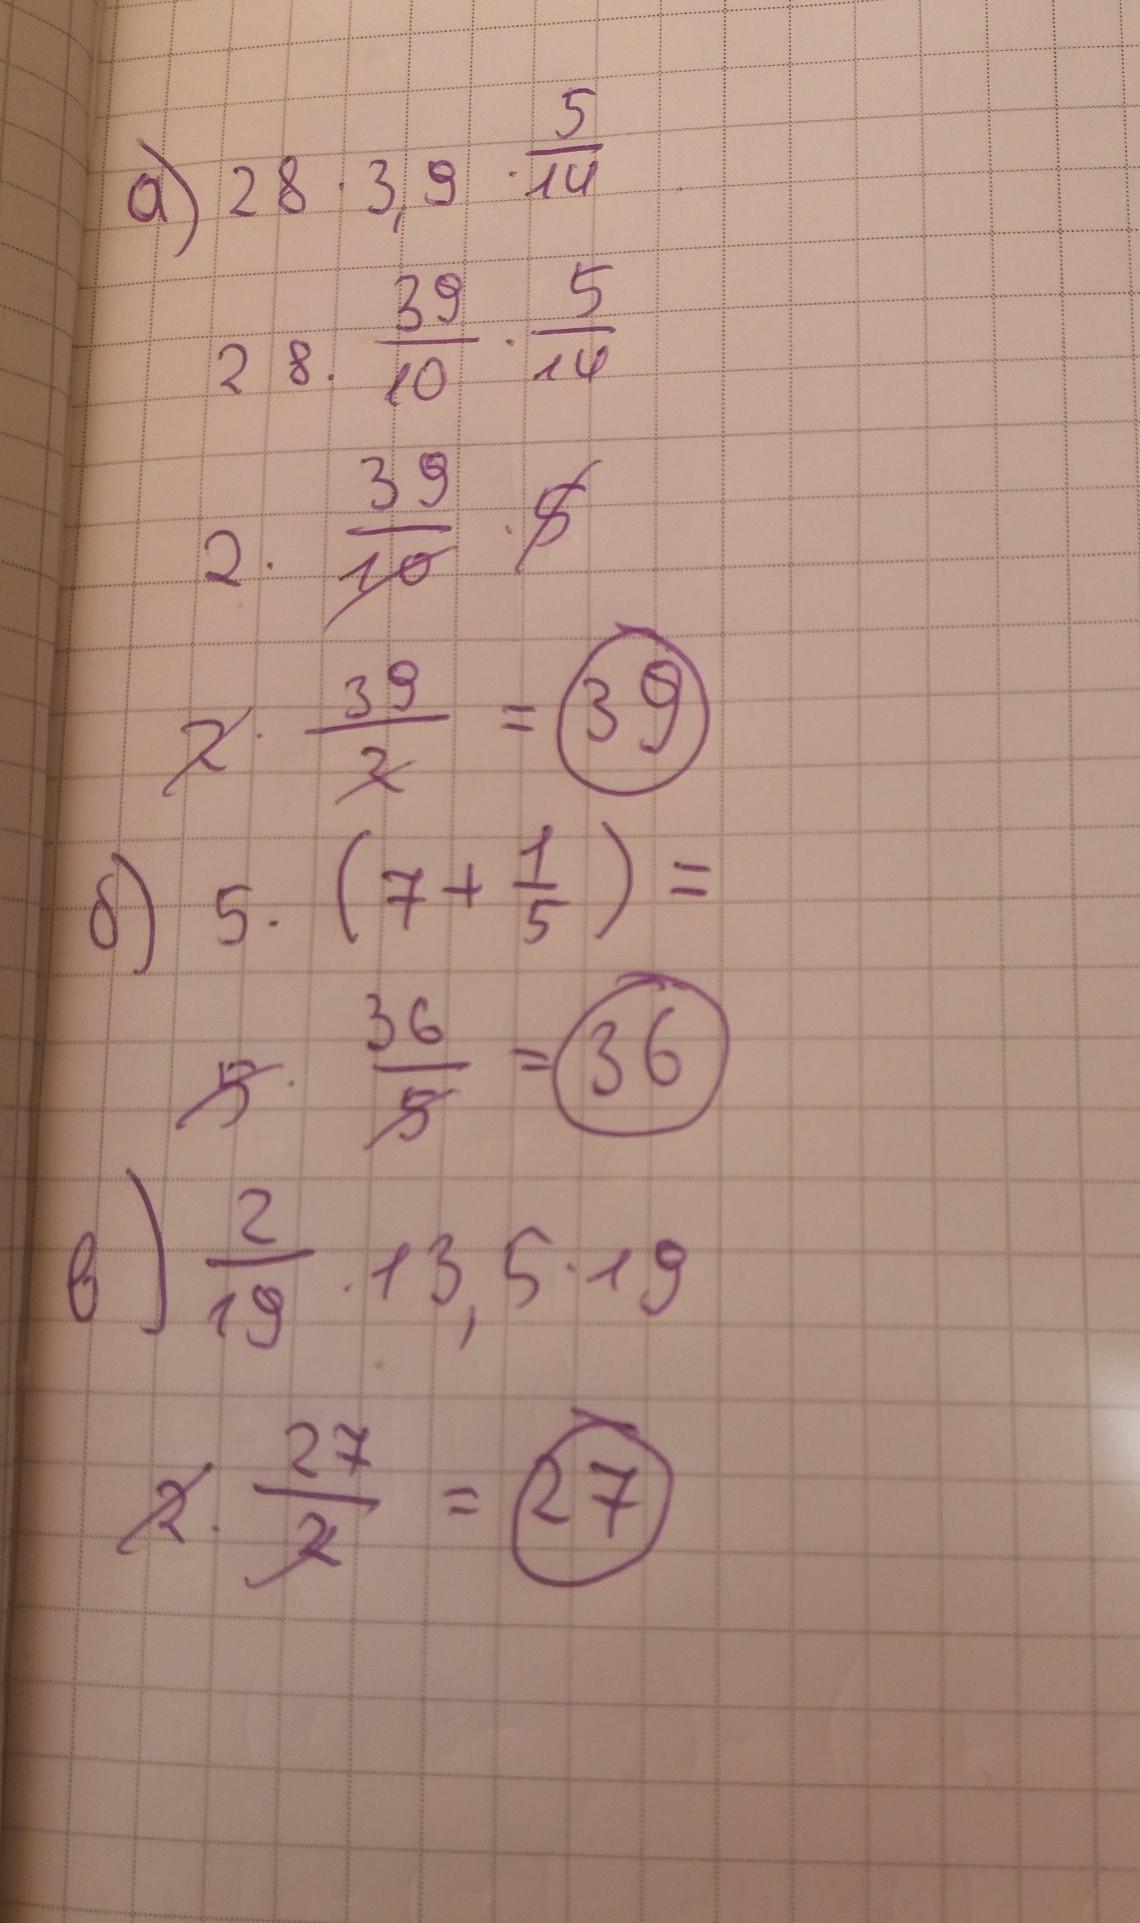 а) 28 · 3,9 · 5/14
28 · 39/10 · 5/14
2 · 39/10 · 5
2 · 39/2 = 39
б) 5 · (7 + 1/5) =
5 · 36/5 = 36
в) 2/19 · 13,5 · 19
2 · 27/2 = 27